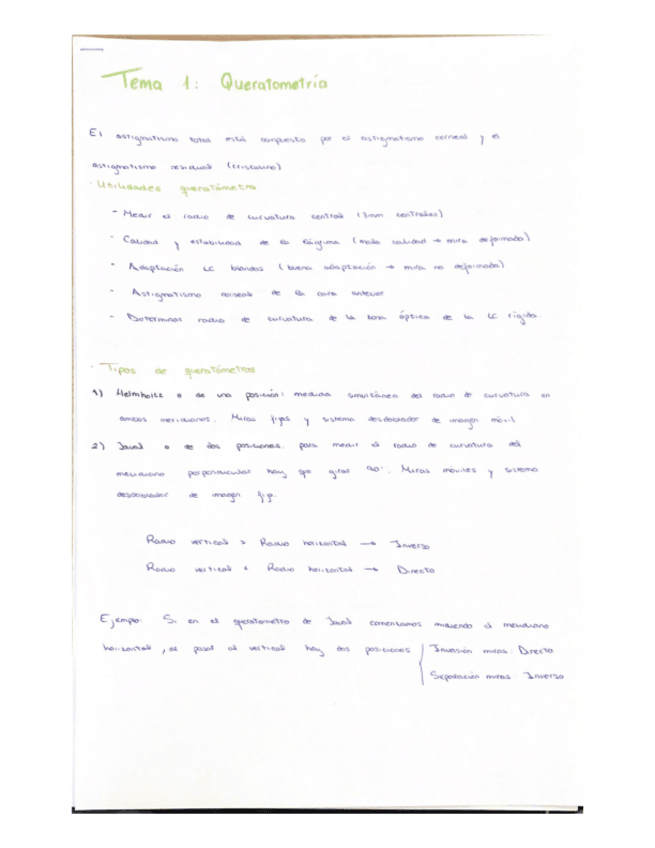 Tema 1: Queratometría
El astigmatismo total está compuesto por el astigmatismo corneal y el
astigmatismo residual (cristalino)
· Utilidades queratómetro
- Medir el radio de curvatura central (3mm centrales)
- Calidad y estabilidad de la lágrima (mala calidad → mira deformada)
- Adaptación LC blandas (buena adaptación → mira no deformada)
- Astigmatismo corneal de la cara anterior
- Determinar radio de curvatura de la zona óptica de la LC rígida.
· Tipos de queratómetros
1) Helmholtz o de una posición: medida simultánea del radio de curvatura en
ambos meridianos. Miras fijas y sistema desdoblador de imagen móvil
2) Javal o de dos posiciones: para medir el radio de curvatura del
meridiano perpendicular hay que girar 90°. Miras móviles y sistema
desdoblador de imagen fijo.
Radio vertical > Radio horizontal → Inverso
Radio vertical < Radio horizontal → Directo
Ejemplo: Si en el queratometro de Javal comenzamos midiendo el meridiano
horizontal, al pasar al vertical hay dos posiciones
Invasión miras: Directo
Separación miras: Inverso